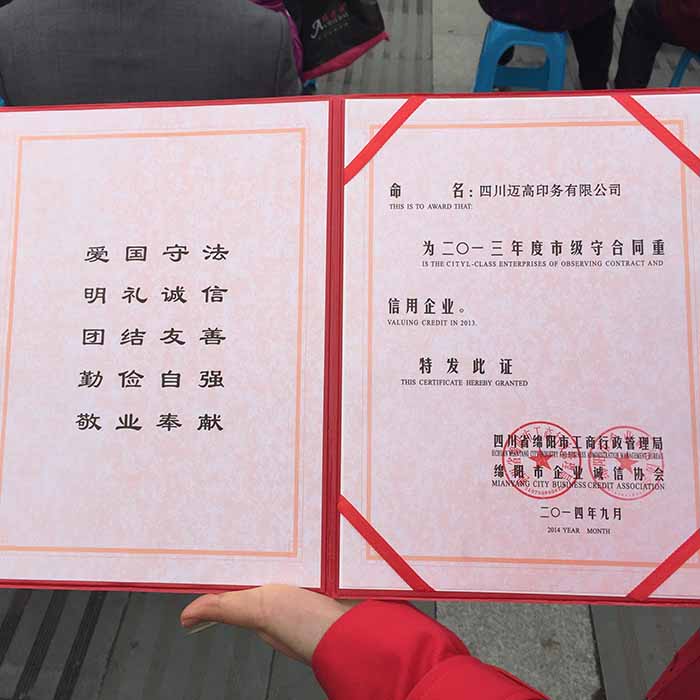 爱国守法
明礼诚信
团结友善
勤俭自强
敬业奉献
命 名:四川迈高印务有限公司
THIS IS TO AWARD THAT:
为二〇一三年度市级守合同重
IS THE CITYL-CLASS ENTERPRISES OF OBSERVING CONTRACT AND
信用企业。
VALUING CREDIT IN 2013.
特发此证
THIS CERTIFICATE HEREBY GRANTED
四川省绵阳市工商行政管理局
绵阳市企业诚信协会
MIANYANG CITY BUSINESS CREDIT ASSOCIATION
二〇一四年九月
2014 YEAR MONTH